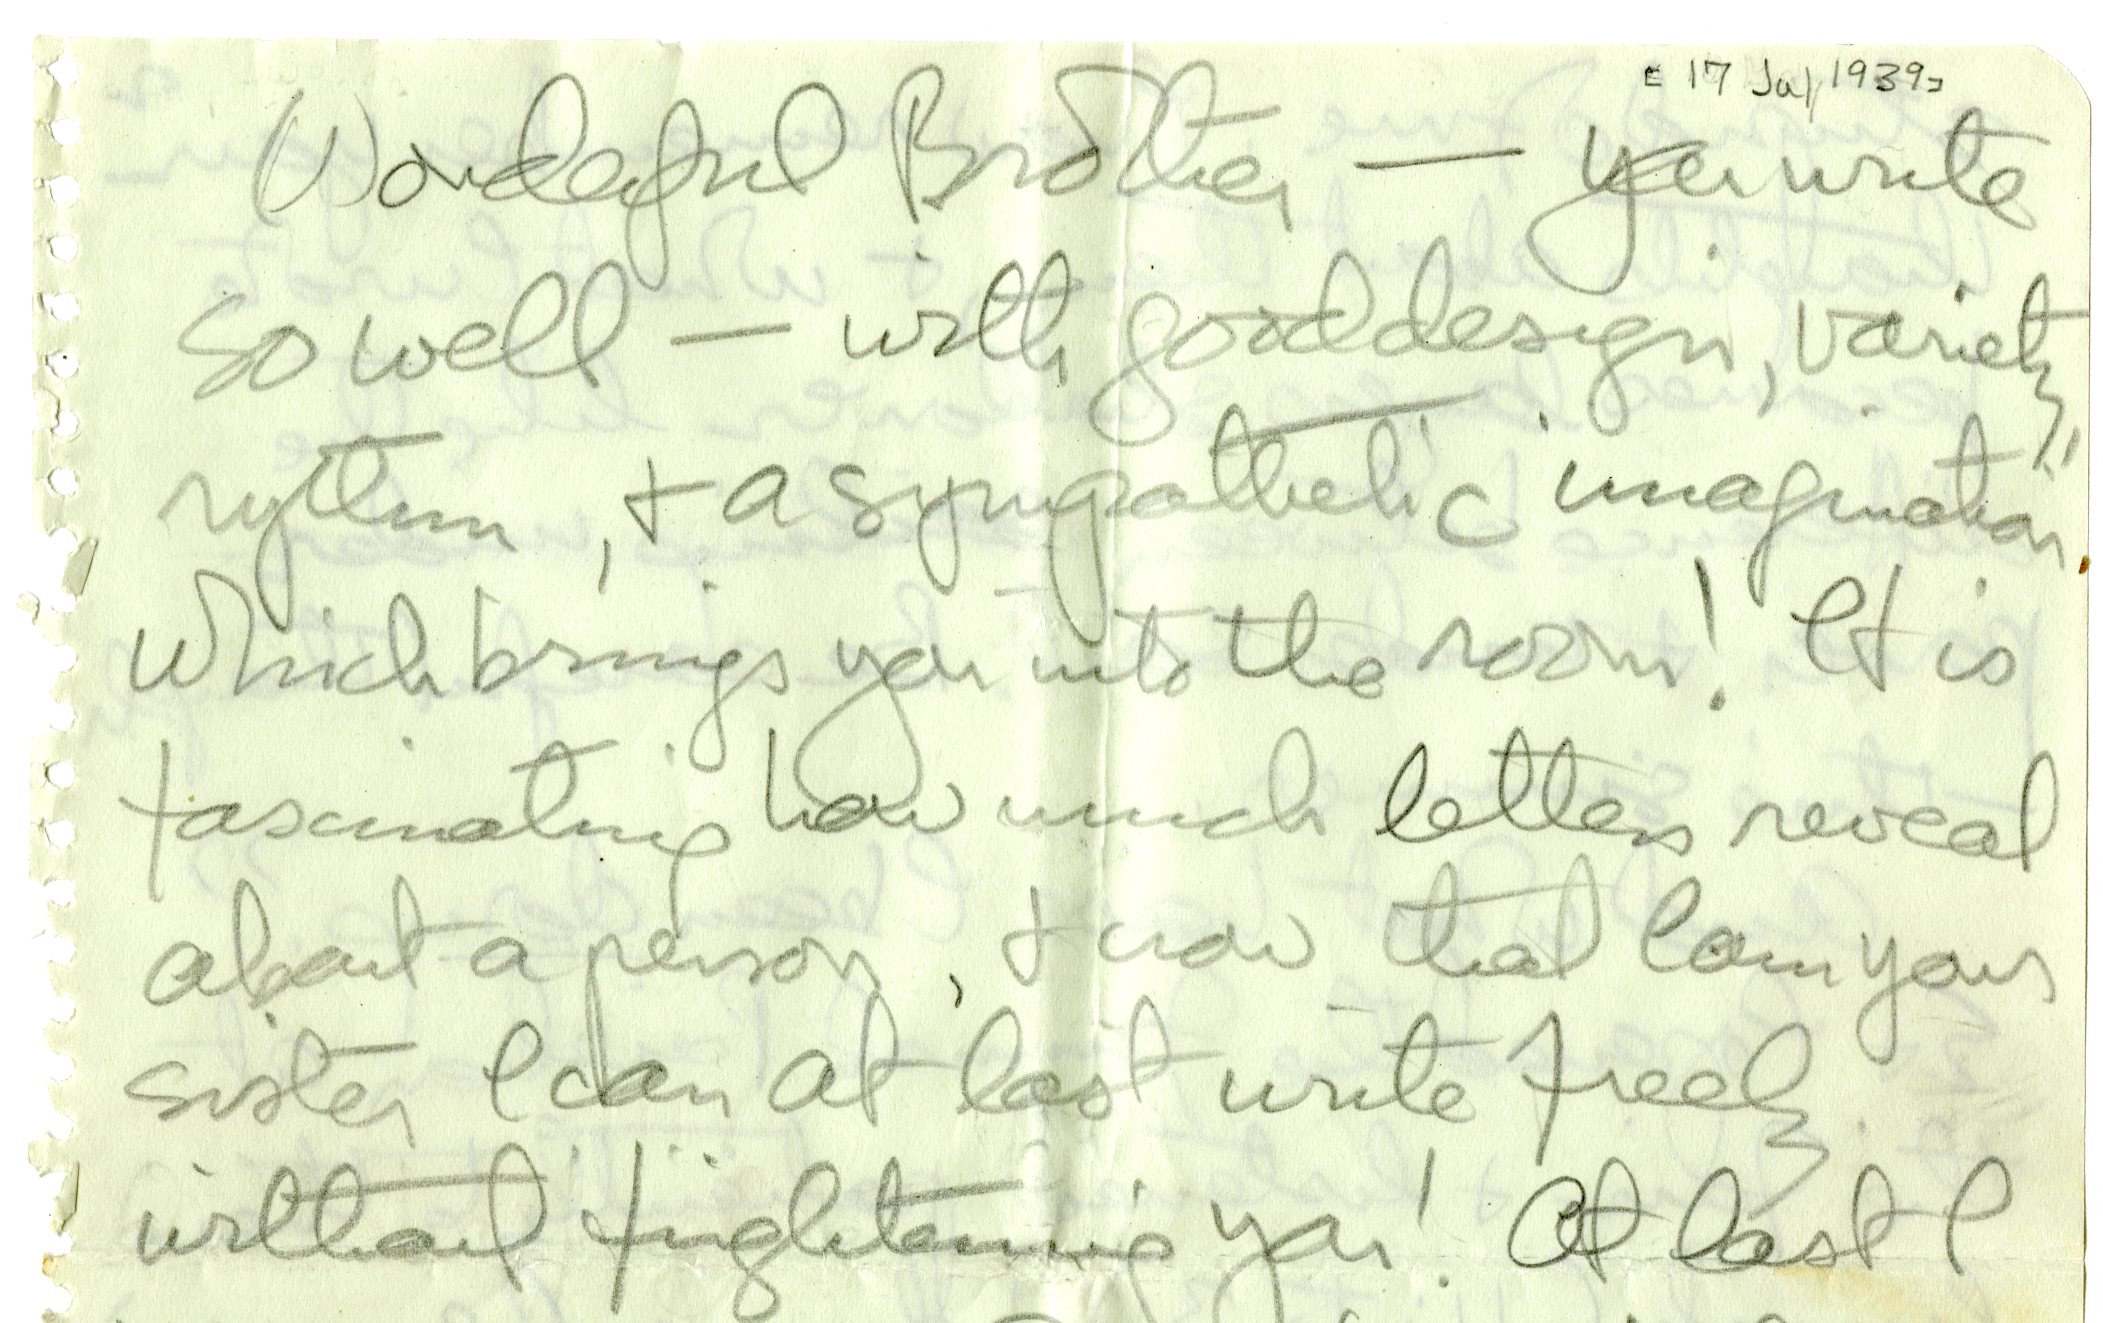 [17 Jul 1939]
Wonderful Brother — you write
so well — with good design, variety,
rythm, + a sympathetic imagination
which brings you into the room! It is
fascinating how much letters reveal
about a person, + now that I am your
sister I can at last write freely
without frightening you! At last I